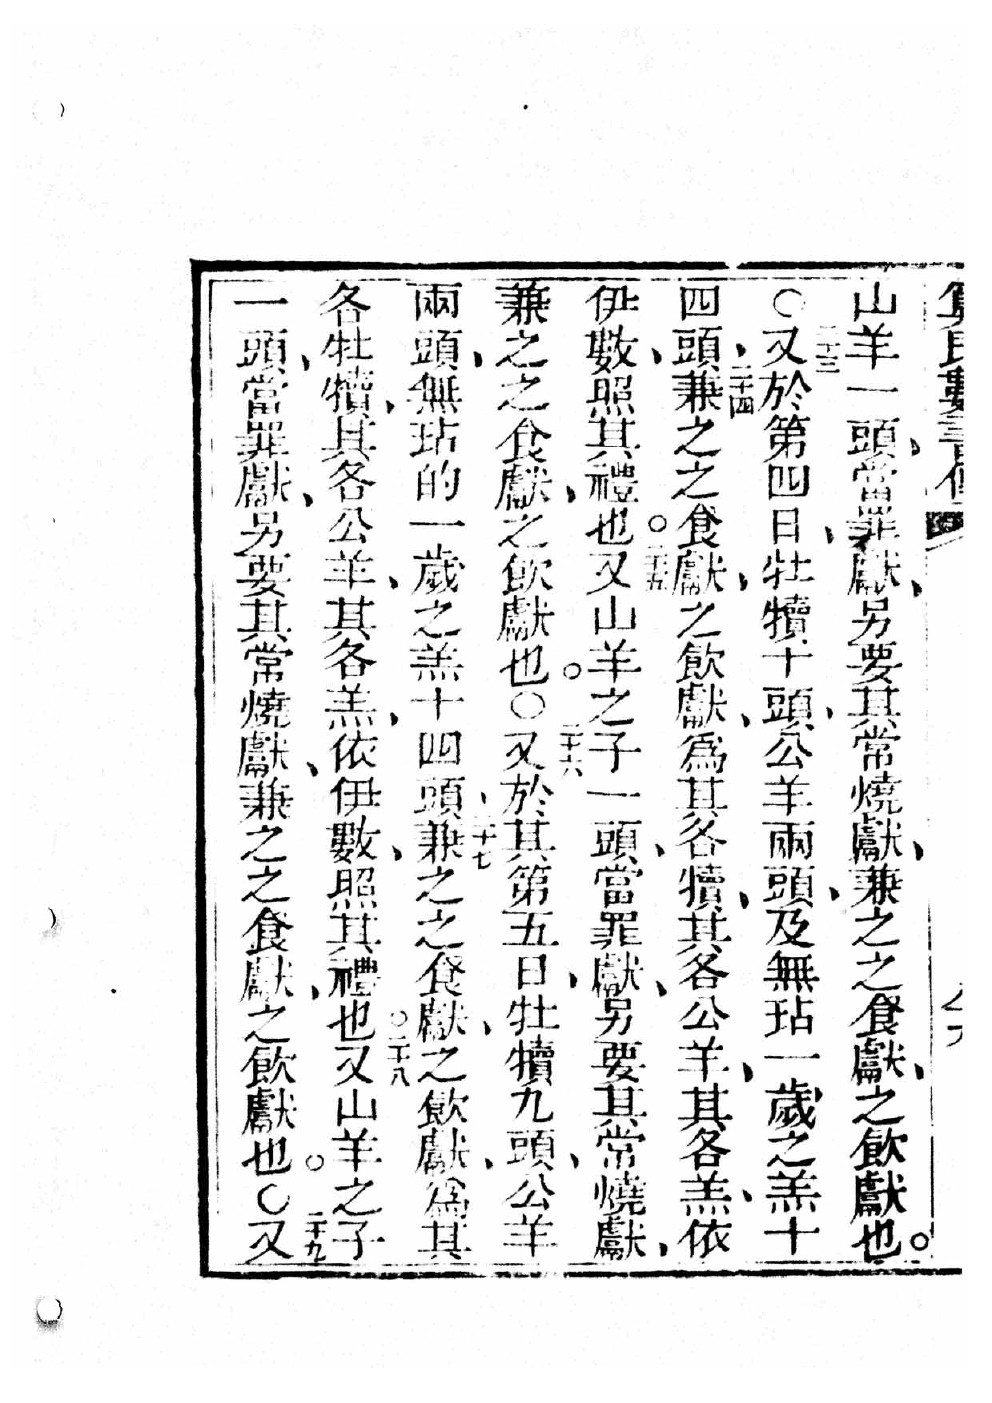 山羊一頭、當罪獻、另要其常燒獻、兼之之食獻、之飲獻也。
○二十三又於第四日、牡犢十頭、公羊兩頭、及無玷一歲之羔十
四頭、二十四兼之之食獻、之飲獻、爲其各犢、其各公羊、其各羔、依
伊數、照其禮也。二十五又山羊之子一頭、當罪獻、另要其常燒獻、
兼之之食獻、之飲獻也。○二十六又於其第五日、牡犢九頭、公羊
兩頭、無玷的一歲之羔十四頭、二十七兼之之食獻、之飲獻、爲其
各牡犢、其各公羊、其各羔、依伊數、照其禮也。二十八又山羊之子
一頭、當罪獻、另要其常燒獻、兼之之食獻、之飲獻也。○二十九又